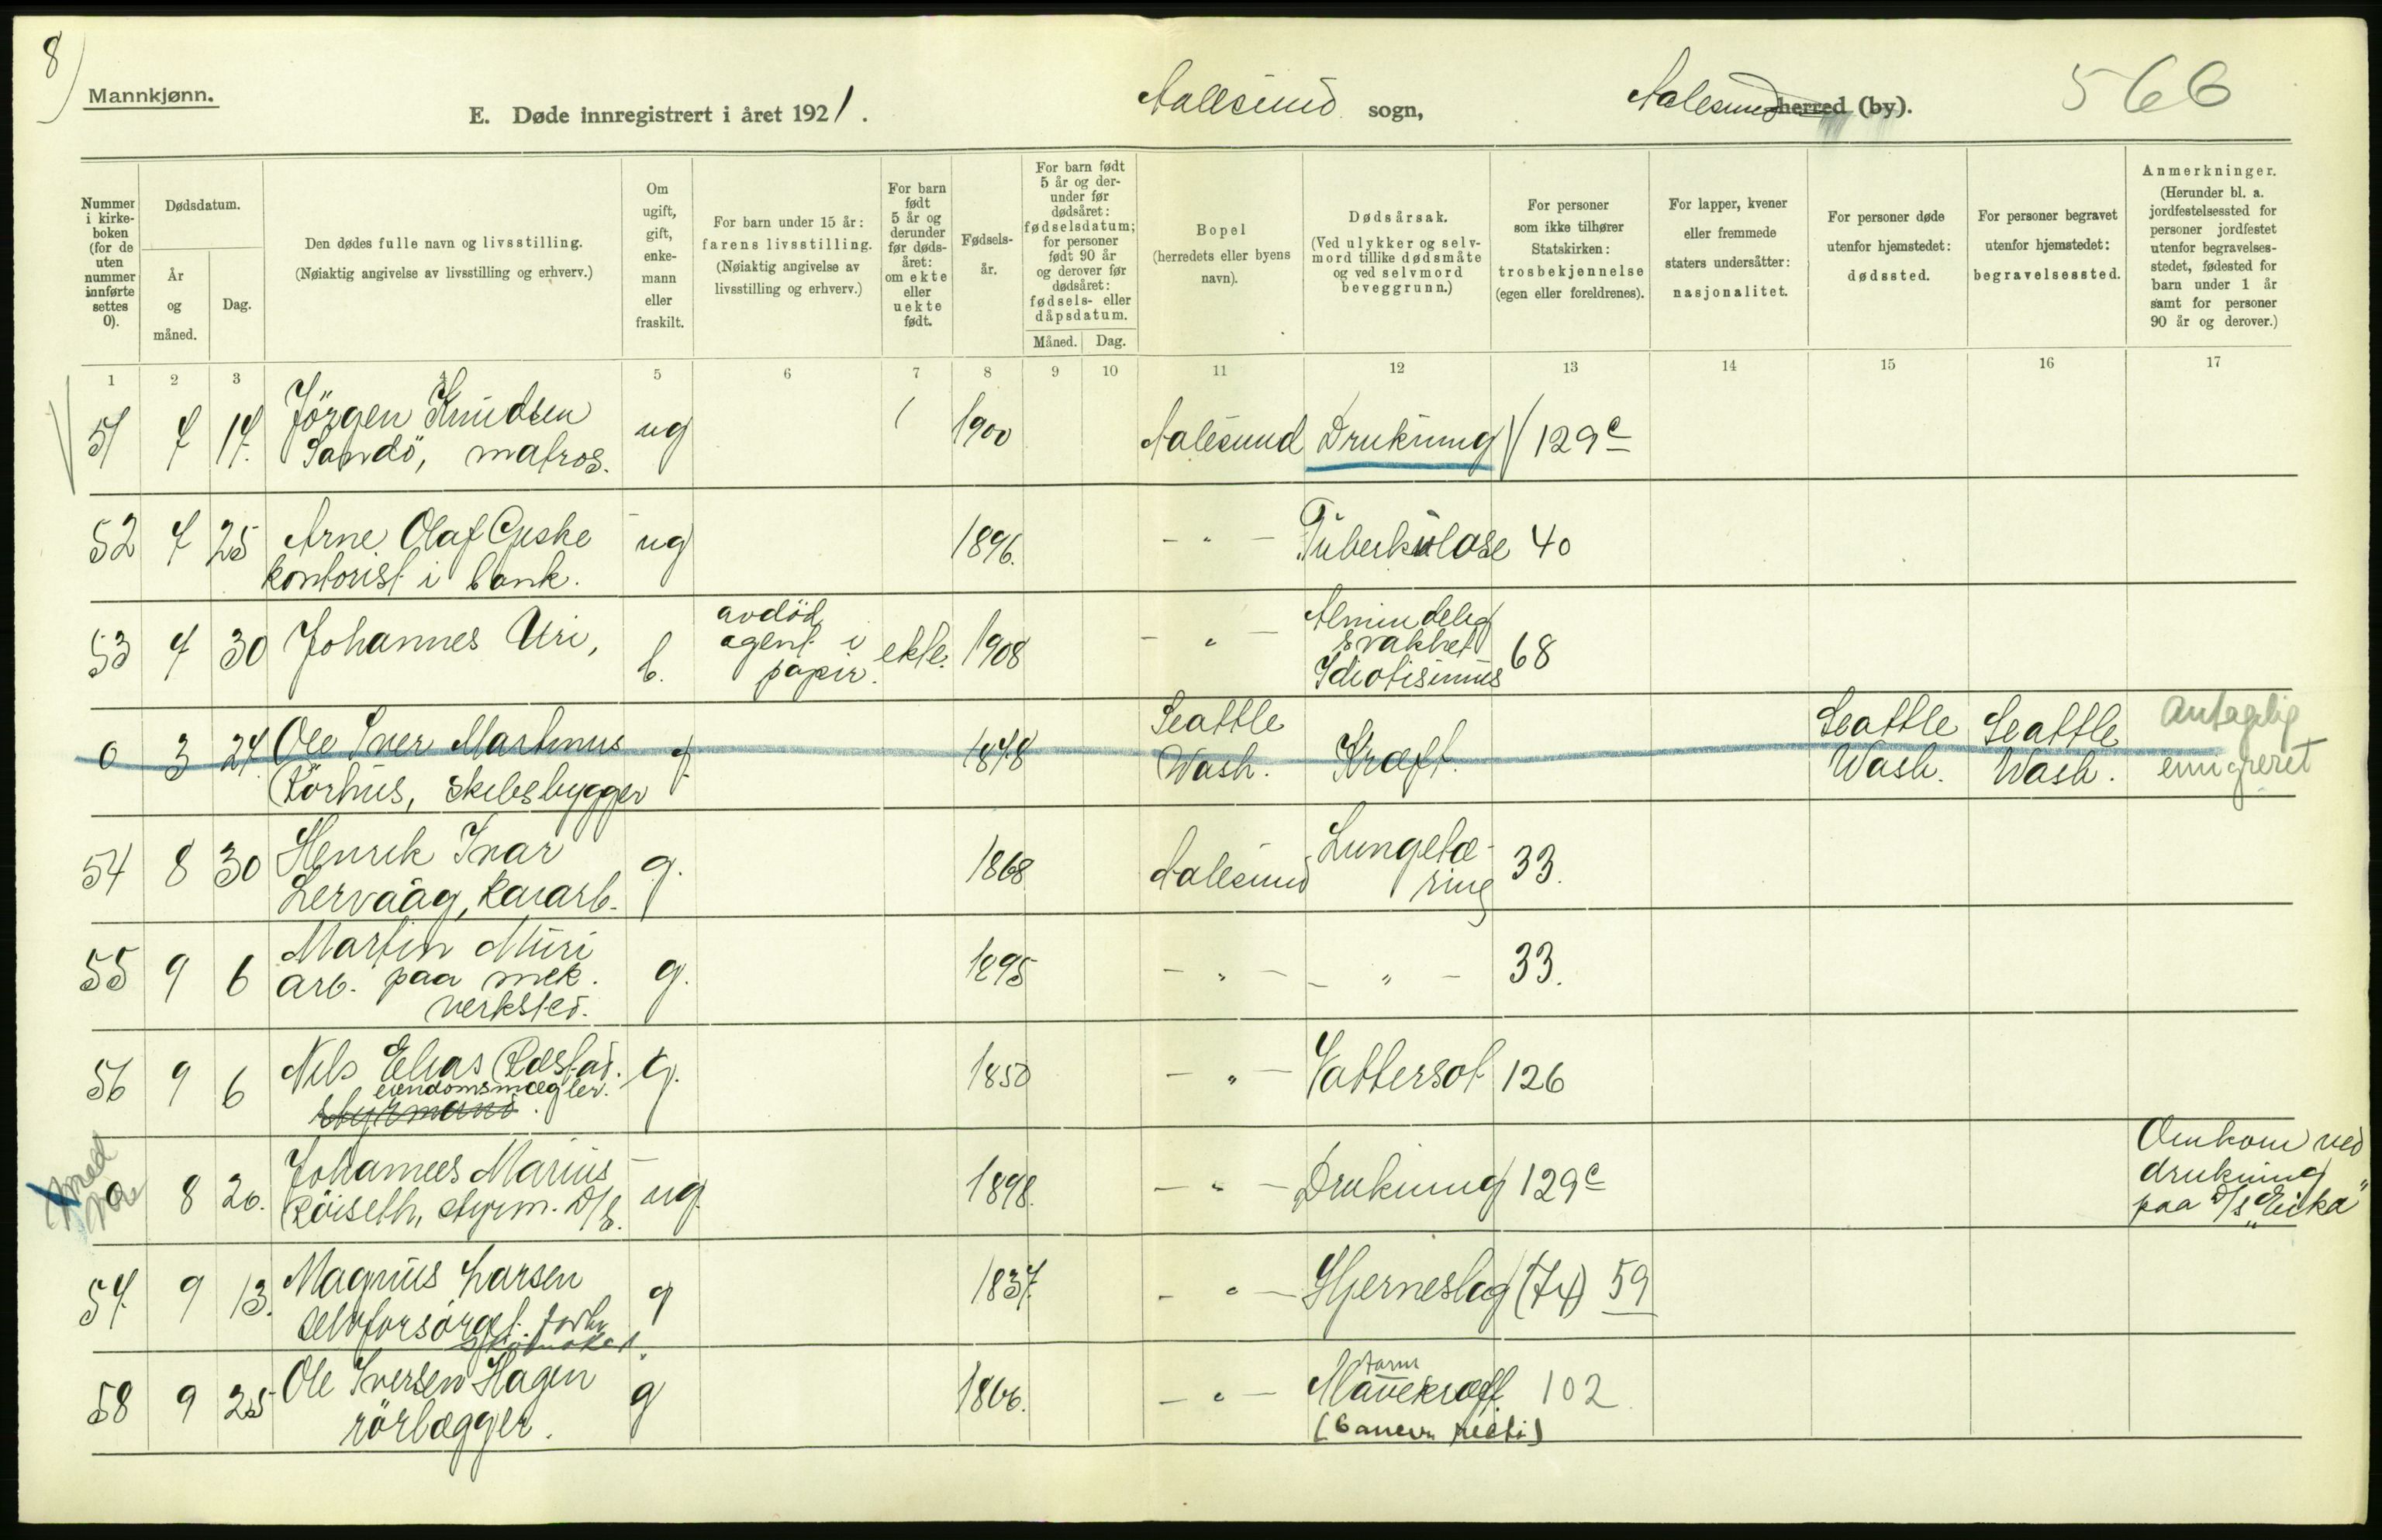 8)
Mannkjønn.
E. Døde innregistrert i året 1921.
Aalesund sogn,
Aalesund herred (by).
566
Nummer i kirkeboken (for de uten nummer innførte settes 0).
Dødsdatum.
År og måned.
Dag.
Den dødes fulle navn og livsstilling.
(Nøiaktig angivelse av livsstilling og erhverv.)
Om ugift, gift, enkemann eller fraskilt.
For barn under 15 år: farens livsstilling.
(Nøiaktig angivelse av livsstilling og erhverv.)
For barn født 5 år og derunder før dødsåret: om ekte eller uekte født.
Fødselsår.
For barn født 5 år og derunder før dødsåret: fødselsdatum; for personer født 90 år og derover før dødsåret: fødsels- eller dåpsdatum.
Måned. Dag.
Bopel
(herredets eller byens navn).
Dødsårsak.
(Ved ulykker og selvmord tillike dødsmåte og ved selvmord beveggrunn.)
For personer som ikke tilhører Statskirken: trosbekjennelse (egen eller foreldrenes).
For lapper, kvener eller fremmede staters undersåtter: nasjonalitet.
For personer døde utenfor hjemstedet: dødssted.
For personer begravet utenfor hjemstedet: begravelsessted.
Anmerkninger.
(Herunder bl. a. jordfestelsessted for personer jordfestet utenfor begravelsesstedet, fødested for barn under 1 år samt for personer 90 år og derover.)
1 2 3 4 5 6 7 8 9 10 11 12 13 14 15 16 17
51 7 17. Jörgen Knudsen ug 1900 Aalesund Drukning 129c
Sandö, matros.
52 7 25 Arne Olaf Gjeske ug 1896. - " - Tuberkulose 40
kontorist i bank.
53 7 30 Johannes Uri, b. avdöd agent i papir. ekte. 1908 - " - Almindelig svakhet Idiotismus 68
0 3 24. Ole Iver Martinus g. 1848 Seattle Wash. Kræft. Seattle Wash. Seattle Wash. Antagelig emigreret
Rörhus, skibsbygger
54 8 30 Henrik Ivar g. 1868 Aalesund Lungetæring 33.
Lervaag, kaiarb.
55 9 6 Martin Muri g. 1895 - " - - " - 33.
arb. paa mek.
verksted.
56 9 6 Nils Elias Røstad. g. 1850 - " - Vattersot 126
eiendomsmægler.
styrmand.
0 8 20. Johannes Marius ug. 1898. - " - Drukning 129c Omkom ved drukning paa D/s „Eicka"
Röiseth, styrm. D/s.
57. 9 13. Magnus Larsen g 1837. - " - Hjerneslag (74) 59
selvforsörget. forhv.
58 9 25 Ole Iversen Hagen g 1866. - " - Mavekræft. 102
tarm
rörlægger. (Cancer recti)